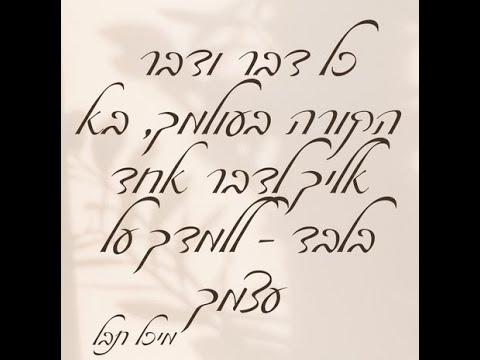 כל דבר ודבר
הקורה בעולמך, בא
אליך לדבר אחד
בלבד - ללמדך על
עצמך
מיכל תבל